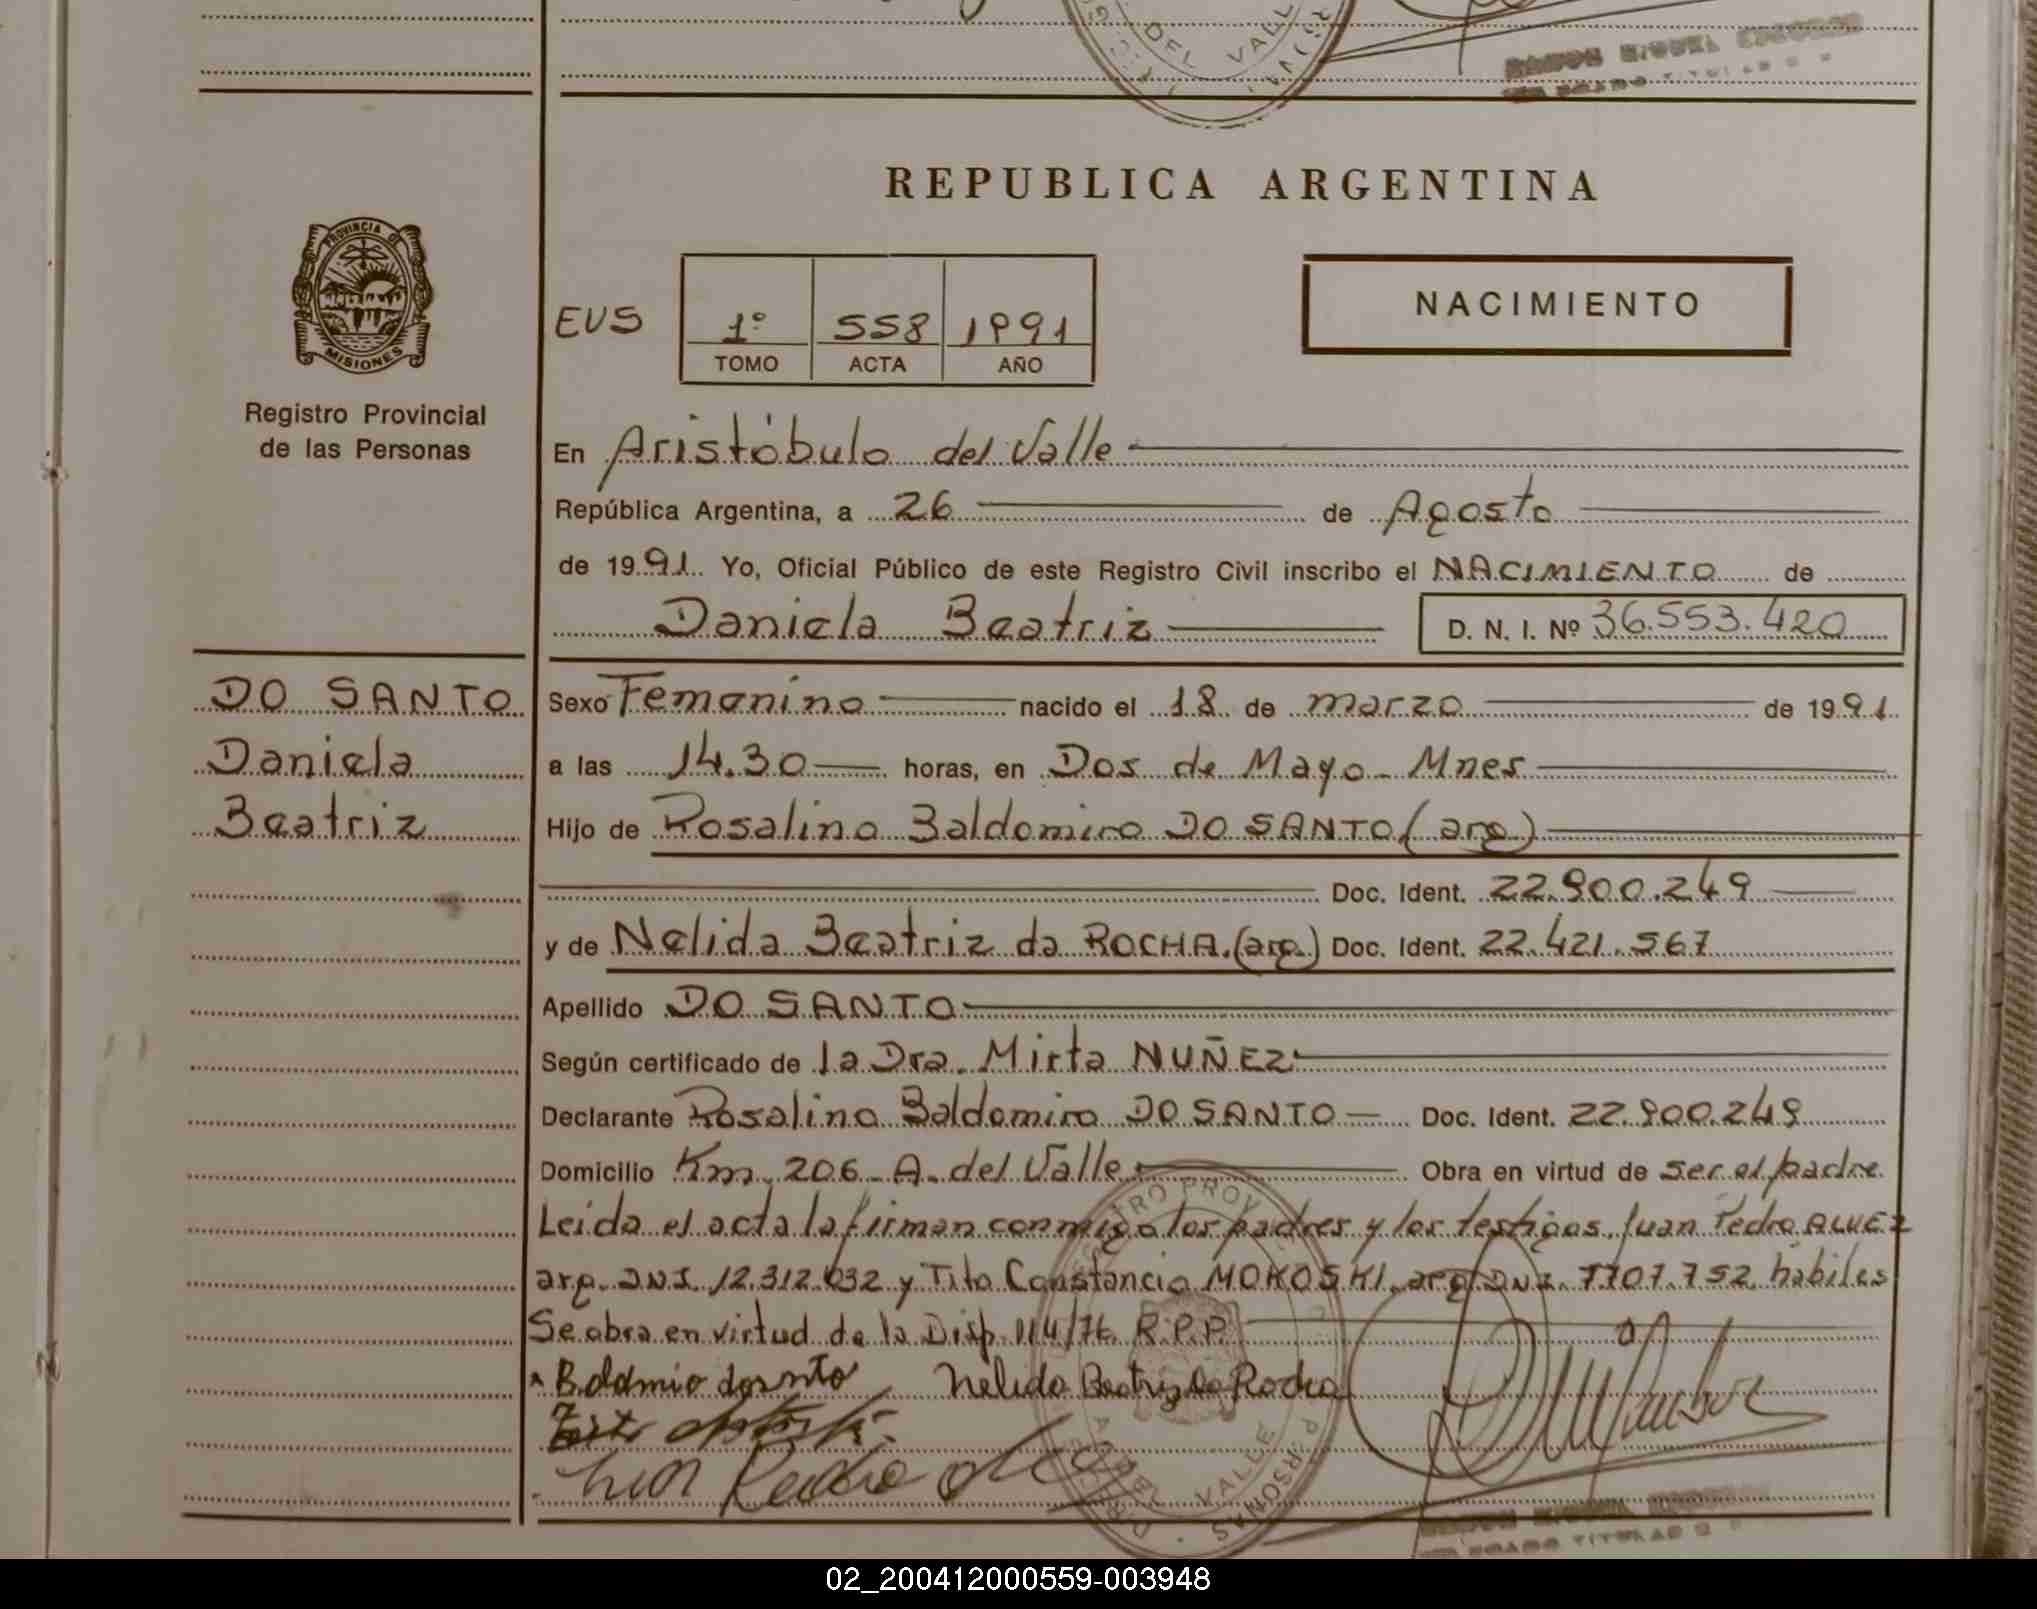 DEL VALLE
REPUBLICA ARGENTINA
PROVINCIA DE
MISIONES
Registro Provincial
de las Personas
EVS
1º 558 1991
TOMO ACTA AÑO
NACIMIENTO
En Aristóbulo del Valle
República Argentina, a 26 de Agosto
de 1991 Yo, Oficial Público de este Registro Civil inscribo el NACIMIENTO de
Daniela Beatriz D. N. I. Nº 36.553.420
DO SANTO
Daniela
Beatriz
Sexo Femenino nacido el 18 de marzo de 1991
a las 14.30 horas, en Dos de Mayo - Mnes
Hijo de Rosalino Baldomiro DO SANTO (arg)
Doc. Ident. 22.900.249
y de Nelida Beatriz da ROCHA.(arg.) Doc. Ident. 22.421.567
Apellido DO SANTO
Según certificado de la Dra. Mirta NUÑEZ
Declarante Rosalino Baldomiro DO SANTO Doc. Ident. 22.900.249
Domicilio Km. 206 - A. del Valle Obra en virtud de ser el padre
Leida el acta la firman conmigo los padres y los testigos, Juan Pedro ALVEZ
arg. D.N.I. 12.312.032 y Tito Constancio MOKOSKI, arg. DNI. 7707.752 hábiles
Se obra en virtud de la Disp. 114/76 R.P.P.
Nelida Beatriz da Rocha
VALLE
02_200412000559-003948